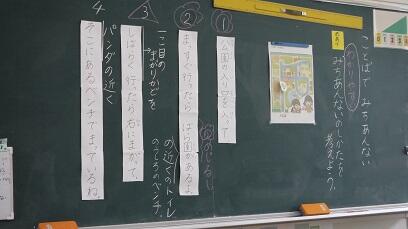 ことばで みちあんない
めあて
わかりやすい
みちあんないのしかたを
考えよう。
①
公園の入り口を入って
②
まっすぐ行ったら ばら園があるよ。
目じるし
の近くのトイレ
のうしろのベンチ。
3
一こ目の
まがりかどを
しばらく行ったら右にまがって、
4
パンダの近く
そこにあるベンチでまっているね。